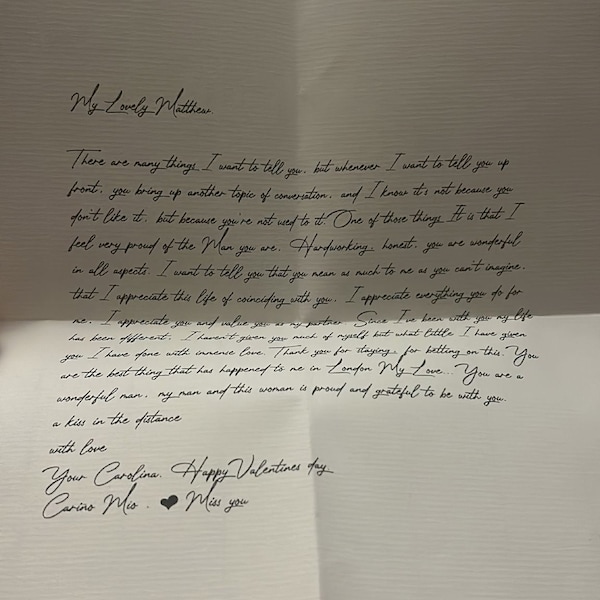 My Lovely Matthew.
There are many things I want to tell you, but whenever I want to tell you up
front, you bring up another topic of conversation, and I know it's not because you
don't like it, but because you're not used to it. One of those things It is that I
feel very proud of the Man you are, Hardworking, honest, you are wonderful
in all aspects. I want to tell you that you mean as much to me as you can't imagine,
that I appreciate this life of coinciding with you, I appreciate everything you do for
me, I appreciate you and value you as my partner. Since I've been with you my life
has been different, I haven't given you much of myself but what little I have given
you I have done with immense love. Thank you for staying, for betting on this. You
are the best thing that has happened to me in London My Love... You are a
wonderful man, my man and this woman is proud and grateful to be with you.
a kiss in the distance
with love
Your Carolina, Happy Valentines day
Cariño Mio . ❤ Miss you